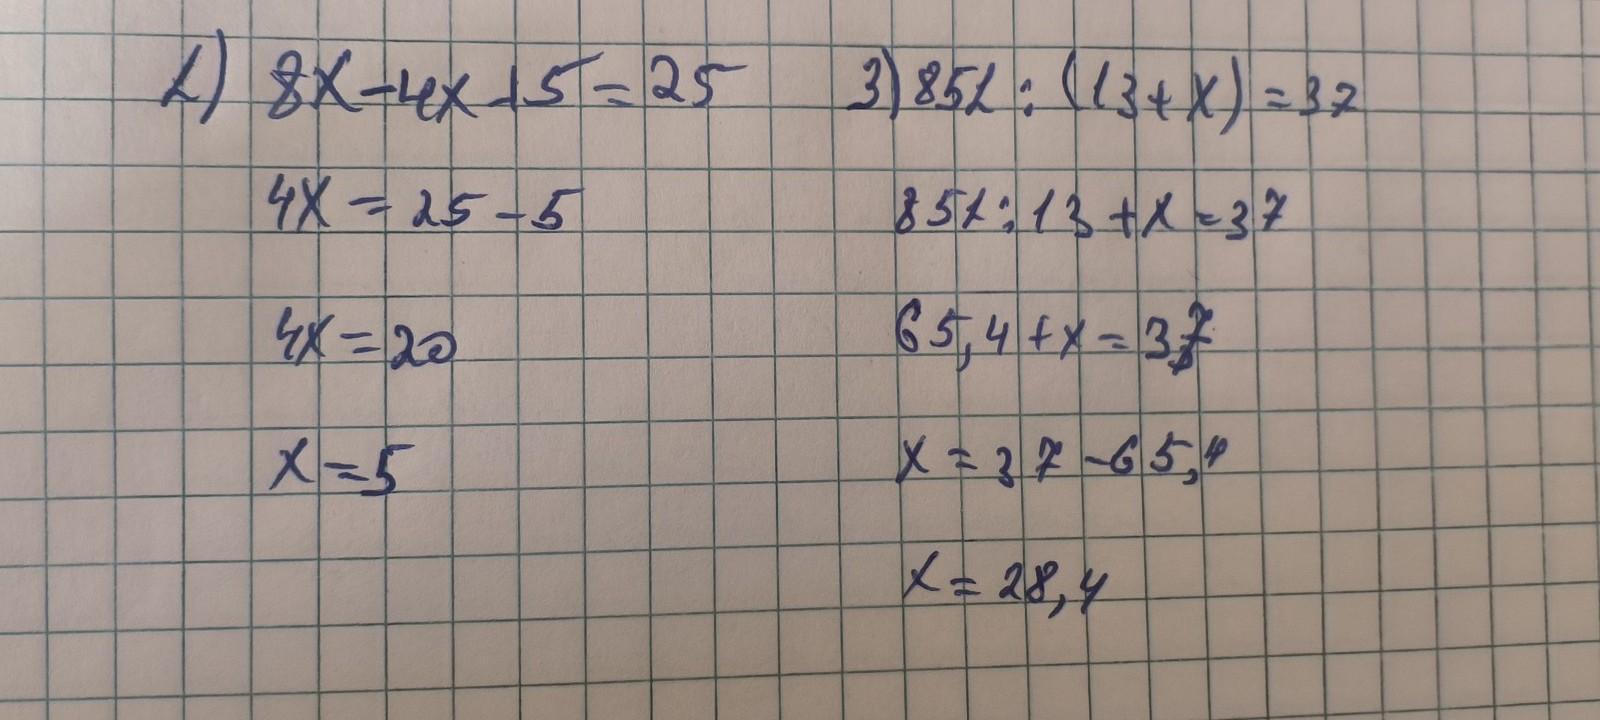 1) 8x-4x+5=25
4x=25-5
4x=20
x=5
3) 851:(13+x)=37
851:13+x=37
65,4+x=37
x=37-65,4
x=28,4